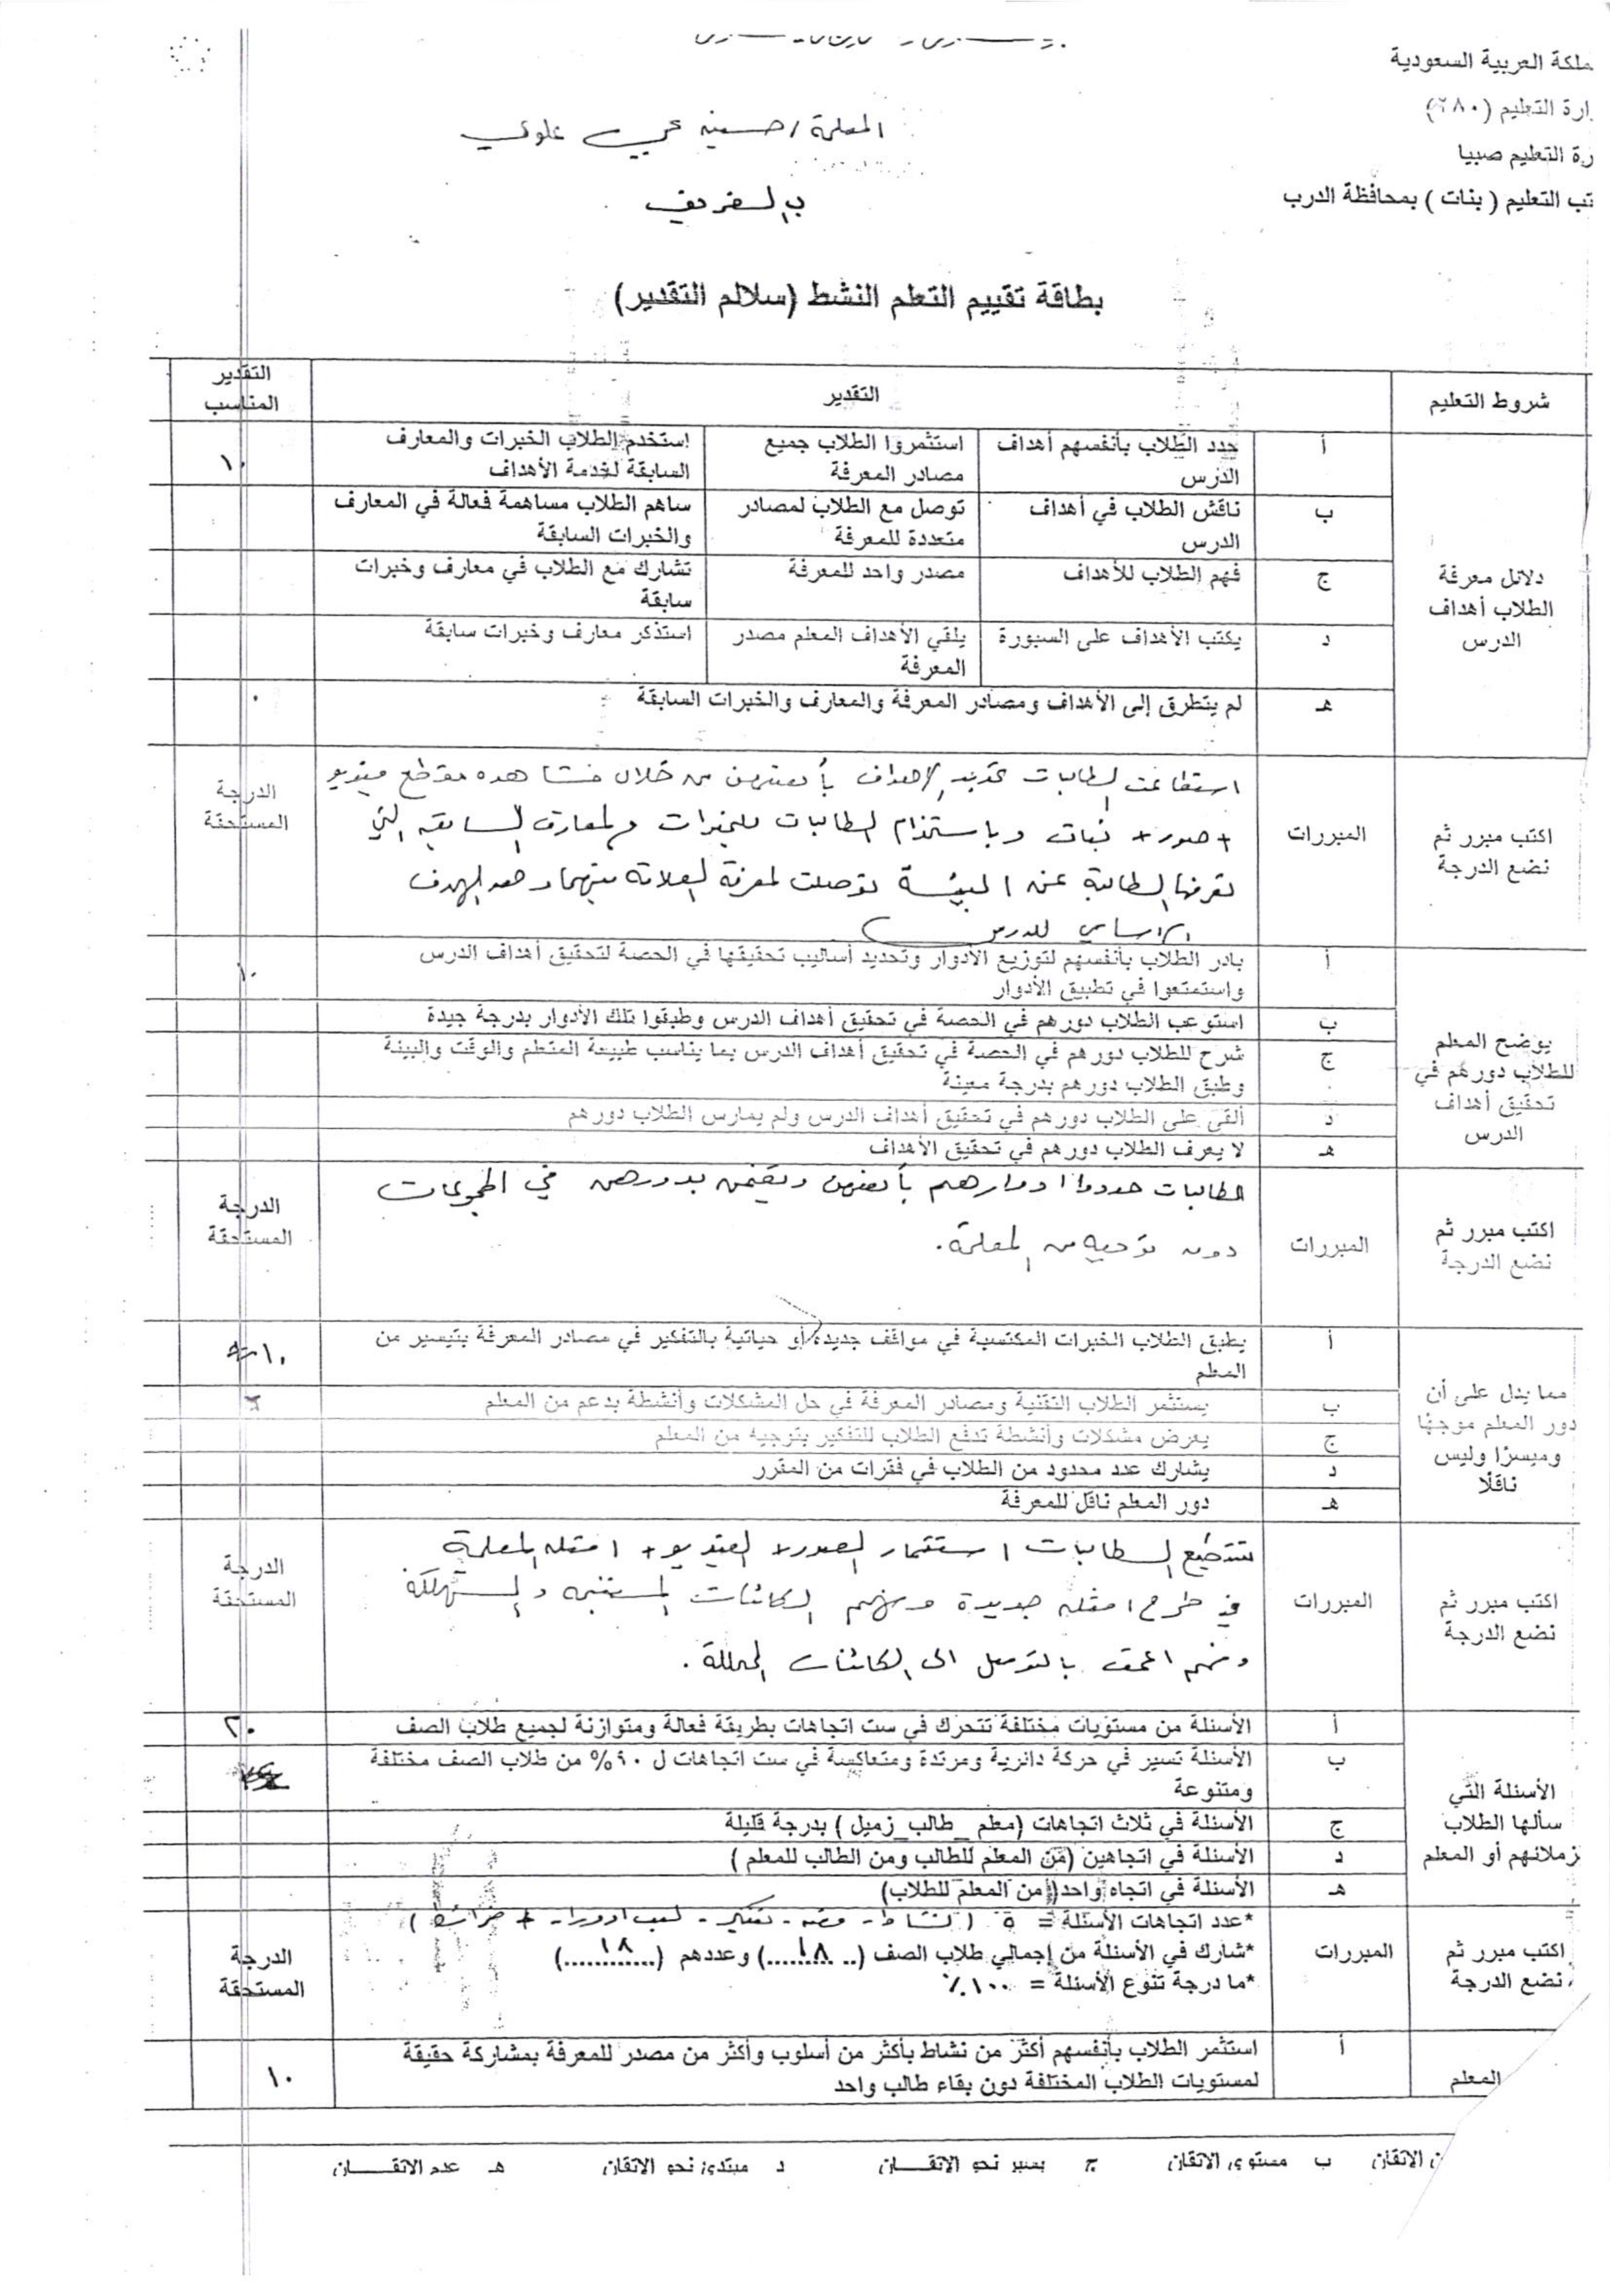 ملكة العربية السعودية
ارة التعليم (٢٨٠)
رة التعليم صبيا
تب التعليم ( بنات ) بمحافظة الدرب
المعلمة / علوي
بطاقة تقييم التعلم النشط (سلالم التقدير)
شروط التعليم التقدير التقدير المناسب
دلائل معرفة الطلاب أهداف الدرس
أ حدد الطلاب بأنفسهم أهداف الدرس استثمروا الطلاب جميع مصادر المعرفة استخدم الطلاب الخبرات والمعارف السابقة لخدمة الأهداف ١٠
ب ناقش الطلاب في أهداف الدرس توصل مع الطلاب لمصادر متعددة للمعرفة ساهم الطلاب مساهمة فعالة في المعارف والخبرات السابقة
ج فهم الطلاب للأهداف مصدر واحد للمعرفة تشارك مع الطلاب في معارف وخبرات سابقة
د يكتب الأهداف على السبورة يلقي الأهداف المعلم مصدر المعرفة استذكر معارف وخبرات سابقة
هـ لم يتطرق إلى الأهداف ومصادر المعرفة والمعارف والخبرات السابقة ٠
اكتب مبرر ثم نضع الدرجة المبررات الدرجة المستحقة
استطاعت الطالبات تحديد الاهداف بأنفسهن من خلال مشاهده مقطع فيديو
+ صور + نبات وباستخدام الطالبات للخبرات والمعارف السابقه التي
تعرفها الطالبة عن البيئة توصلت لمعرفة العلاقة بينهما وهو الهدف
الاساسي للدرس
يوضح المعلم للطلاب دورهم في تحقيق أهداف الدرس
أ بادر الطلاب بأنفسهم لتوزيع الأدوار وتحديد أساليب تحقيقها في الحصة لتحقيق أهداف الدرس واستمتعوا في تطبيق الأدوار ١٠
ب استوعب الطلاب دورهم في الحصة في تحقيق أهداف الدرس وطبقوا تلك الأدوار بدرجة جيدة
ج شرح للطلاب دورهم في الحصة في تحقيق أهداف الدرس بما يناسب طبيعة المتعلم والوقت والبيئة وطبق الطلاب دورهم بدرجة معينة
د ألقى على الطلاب دورهم في تحقيق أهداف الدرس ولم يمارس الطلاب دورهم
هـ لا يعرف الطلاب دورهم في تحقيق الأهداف
اكتب مبرر ثم نضع الدرجة المبررات الدرجة المستحقة
الطالبات حددوا ادوارهم بأنفسهن ويقمن بدورهن في المجموعات
دون توجيه من المعلمة .
مما يدل على أن دور المعلم موجهًا وميسرًا وليس ناقلًا
أ يطبق الطلاب الخبرات المكتسبة في مواقف جديدة/أو حياتية بالتفكير في مصادر المعرفة بتيسير من المعلم ١٠
ب يستثمر الطلاب التقنية ومصادر المعرفة في حل المشكلات وأنشطة بدعم من المعلم
ج يعرض مشكلات وأنشطة تدفع الطلاب للتفكير بتوجيه من المعلم
د يشارك عدد محدود من الطلاب في فقرات من المقرر
هـ دور المعلم ناقل للمعرفة
اكتب مبرر ثم نضع الدرجة المبررات الدرجة المستحقة
تستطيع الطالبات استثمار الصور + الفيديو + امثله المعلمة
في طرح امثله جديدة وفهم الكائنات المنتجه والمستهلكة
وفهم اعمق بالتوصل الى الكائنات المحللة .
الأسئلة التي سألها الطلاب زملائهم أو المعلم
أ الأسئلة من مستويات مختلفة تتحرك في ست اتجاهات بطريقة فعالة ومتوازنة لجميع طلاب الصف ٢٠
ب الأسئلة تسير في حركة دائرية ومرتدة ومتعاكسة في ست اتجاهات ل ٩٠% من طلاب الصف مختلفة ومتنوعة
ج الأسئلة في ثلاث اتجاهات (معلم _ طالب_زميل ) بدرجة قليلة
د الأسئلة في اتجاهين (من المعلم للطالب ومن الطالب للمعلم )
هـ الأسئلة في اتجاه واحد(من المعلم للطلاب)
اكتب مبرر ثم نضع الدرجة المبررات الدرجة المستحقة
*عدد اتجاهات الأسئلة = ٥ ( نشاط - قصه - تفكير - لعب ادوار - + خرائط )
*شارك في الأسئلة من إجمالي طلاب الصف (..١٨..) وعددهم (..١٨..)
*ما درجة تنوع الأسئلة = ١٠٠٪
المعلم
أ استثمر الطلاب بأنفسهم أكثر من نشاط بأكثر من أسلوب وأكثر من مصدر للمعرفة بمشاركة حقيقة لمستويات الطلاب المختلفة دون بقاء طالب واحد ١٠
ن الاتقان ب مستوى الاتقان ج يسير نحو الاتقـــان د مبتدئ نحو الاتقان هـ عدم الاتقـــــان